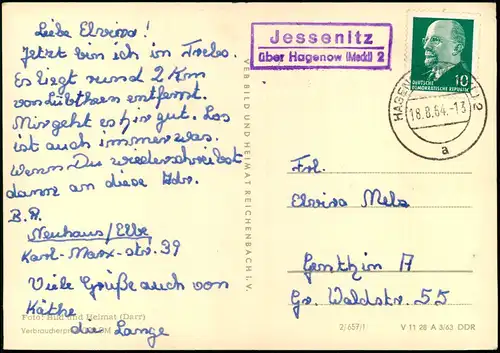 Liebe Elvira!
Jetzt bin ich in Trebs.
Es liegt rund 2 Km
von Lübtheen entfernt.
Mir geht es hir gut. Los
ist auch immer was.
wenn Du wiederschreibst
dann an diese Adr.
B. R.
Neuhaus/Elbe
Karl-Marx-str. 39
Viele Grüße auch von
Käthe
die Lange
Foto: Bild und Heimat (Darr)
Verbraucherpreis
VEB BILD UND HEIMAT REICHENBACH I. V.
Jessenitz
über Hagenow (Meckl) 2
10
DEUTSCHE
DEMOKRATISCHE REPUBLIK
18.8.64.-13
a
Frl.
Elvira Mels
Genthin A
Gr. Waldstr. 55
2/657/1
V 11 28 A 3/63 DDR